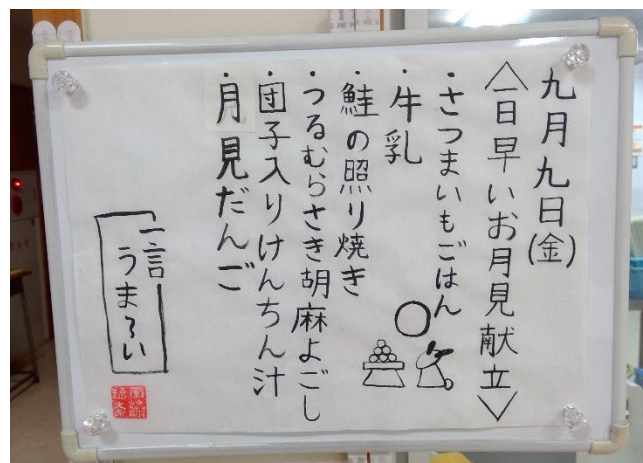 九月九日(金)
〈一日早いお月見献立〉
・さつまいもごはん
・牛乳
・鮭の照り焼き
・つるむらさき胡麻よごし
・団子入りけんちん汁
・月見だんご
一言
うま〜い